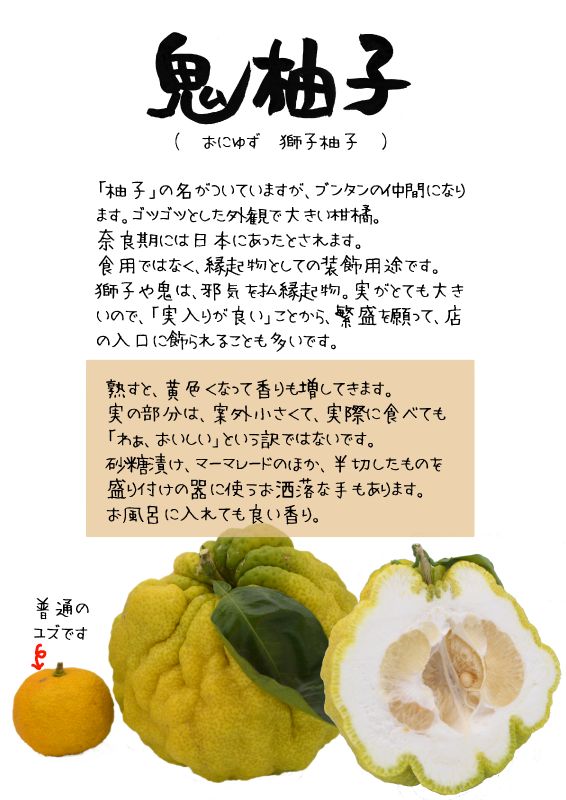 鬼柚子
（ おにゆず 獅子柚子 ）
「柚子」の名がついていますが、ブンタンの仲間になり
ます。ゴツゴツとした外観で大きい柑橘。
奈良期には日本にあったとされます。
食用ではなく、縁起物としての装飾用途です。
獅子や鬼は、邪気を払縁起物。実がとても大き
いので、「実入りが良い」ことから、繁盛を願って、店
の入口に飾られることも多いです。
熟すと、黄色くなって香りも増してきます。
実の部分は、案外小さくて、実際に食べても
「わぁ、おいしい」という訳ではないです。
砂糖漬け、マーマレードのほか、半切したものを
盛り付けの器に使うお洒落な手もあります。
お風呂に入れても良い香り。
普通の
ユズです